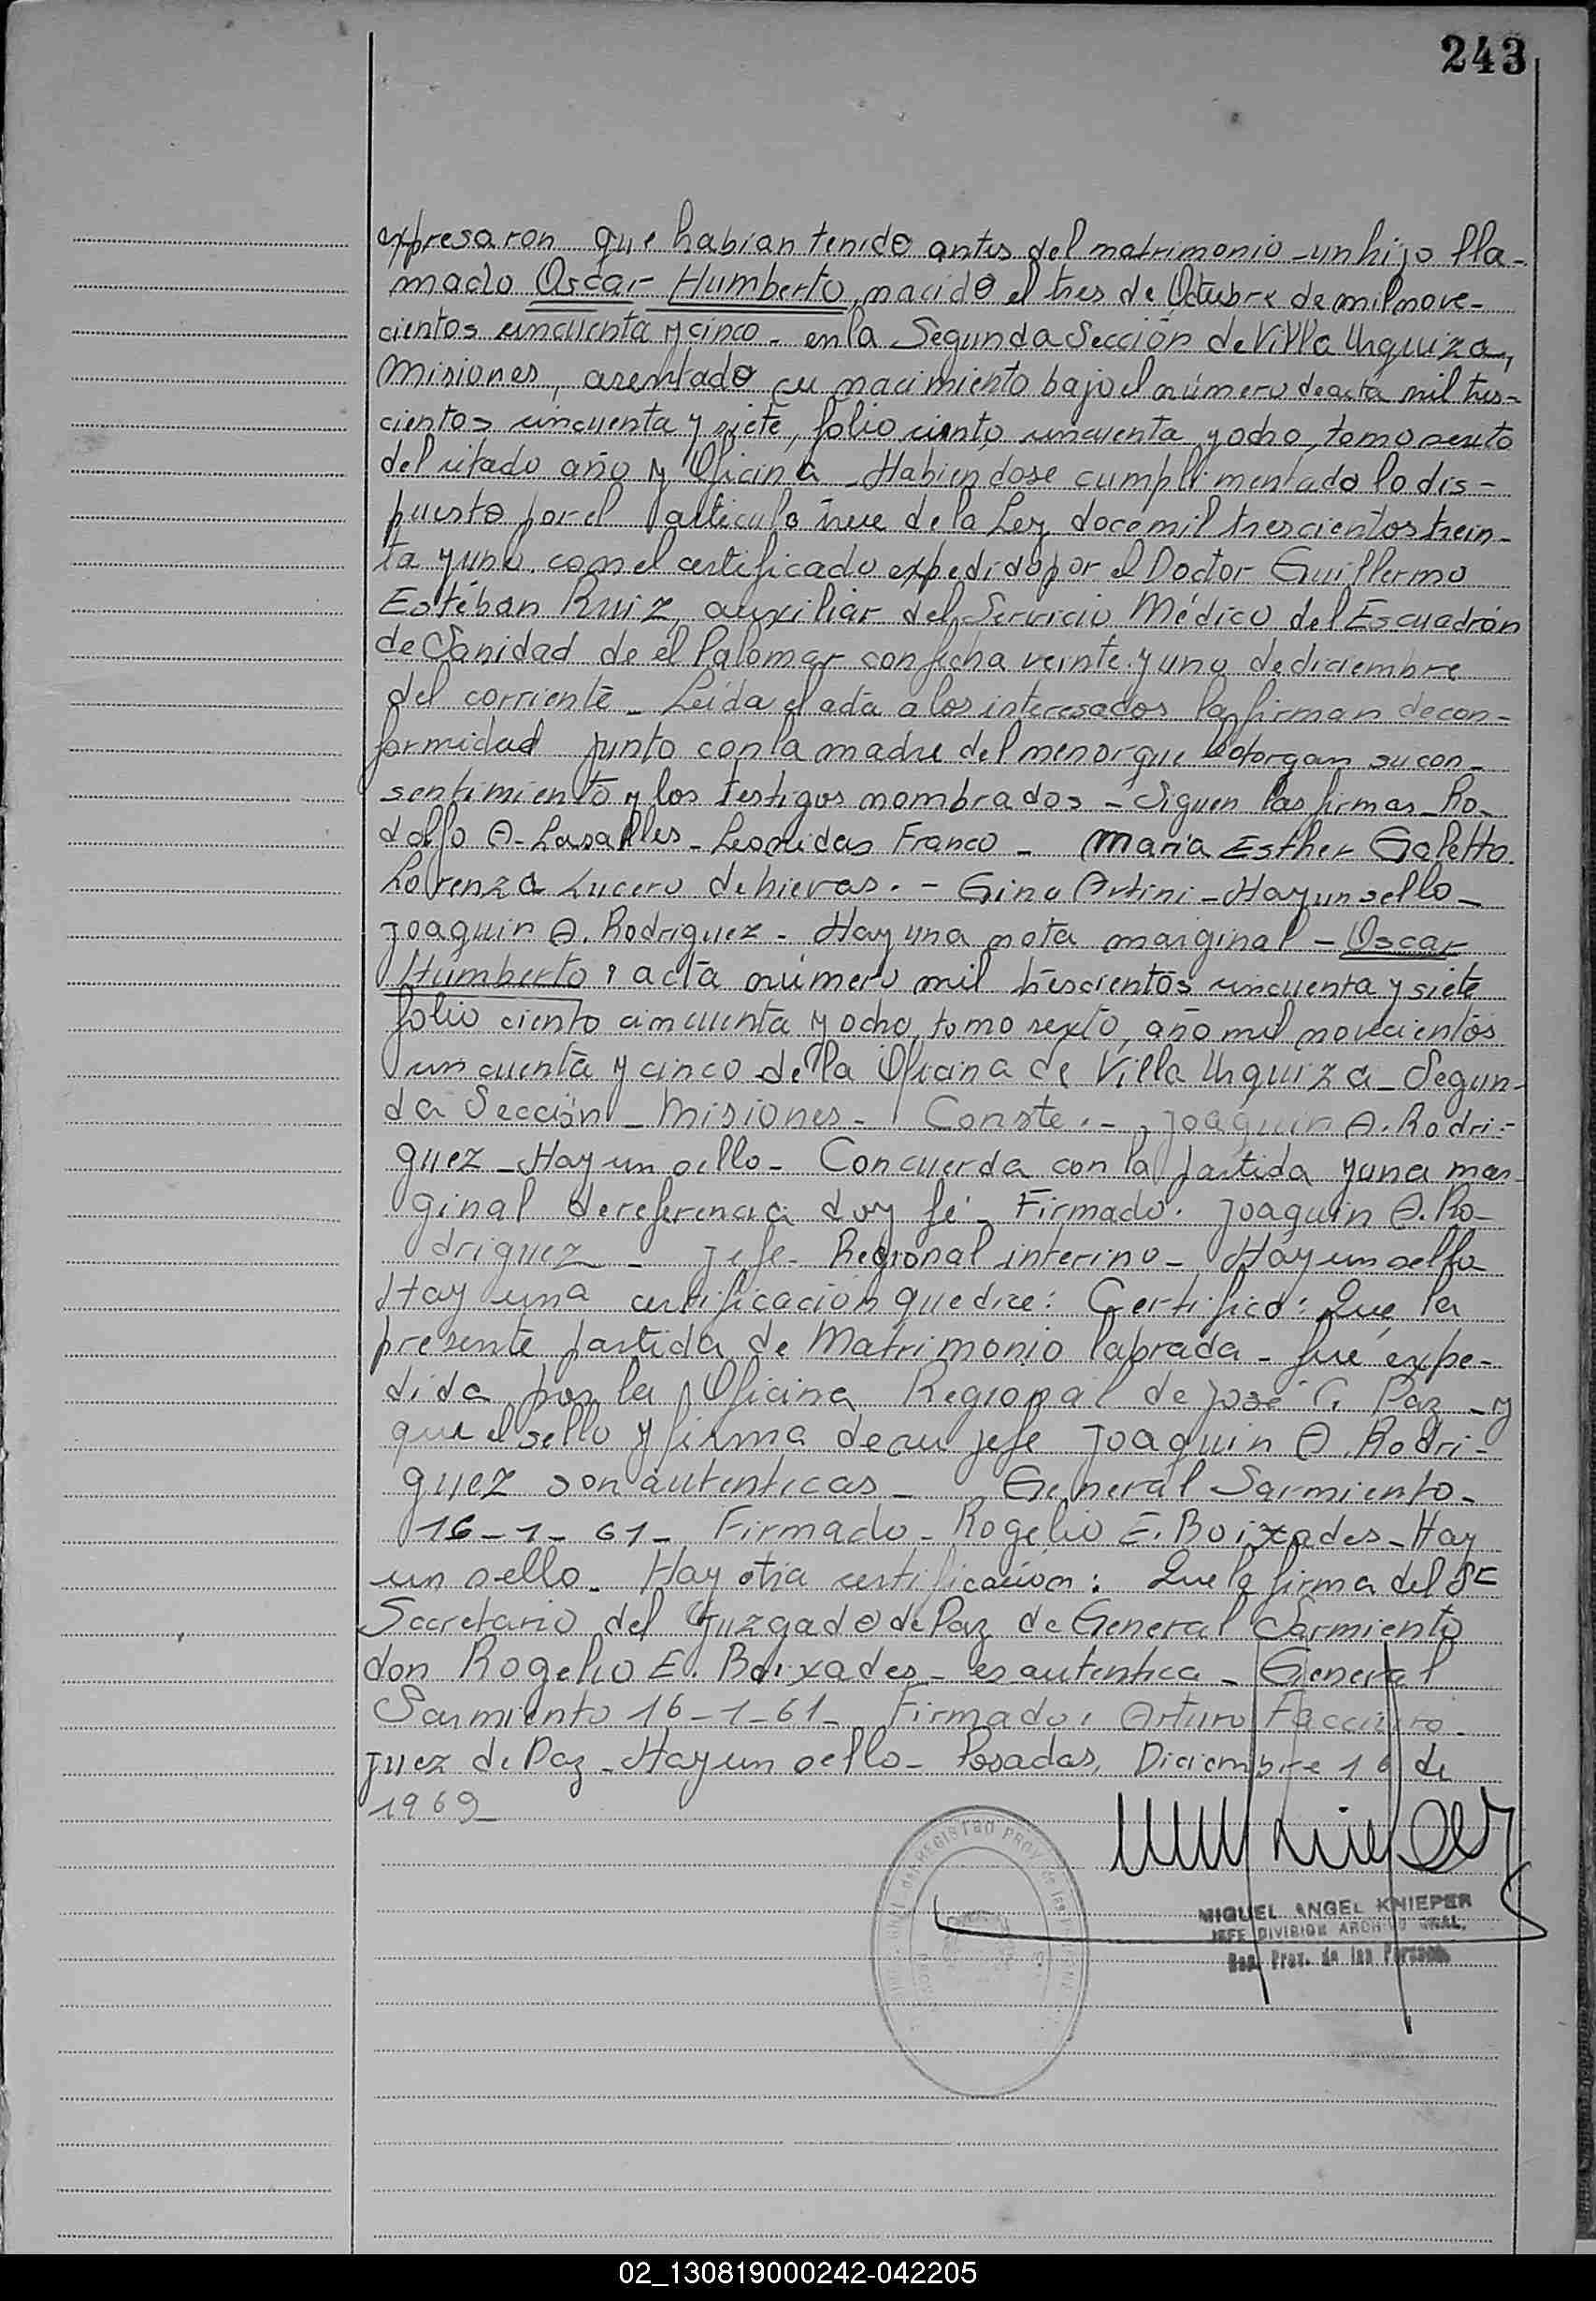 243
expresaron que habian tenido antes del matrimonio - un hijo lla-
mado Oscar Humberto, nacido el tres de Octubre de mil nove-
cientos cincuenta y cinco - en la Segunda Sección de Villa Urquiza,
Misiones, asentado su nacimiento bajo el número de acta mil tres-
cientos cincuenta y siete, folio ciento cincuenta y ocho, tomo sexto
del citado año y Oficina - Habiendose cumplimentado lo dis-
puesto por el articulo trece de la Ley doce mil trescientos trein-
ta y uno. con el certificado expedido por el Doctor Guillermo
Estéban Ruiz, auxiliar del Servicio Médico del Escuadrón
de Sanidad de el Palomar con fecha veinte y uno de diciembre
del corriente - Leída el acta a los interesados la firman de con-
formidad junto con la madre del menor que le otorgan su con-
sentimiento y los testigos nombrados - Siguen las firmas - Ro-
dolfo A. Lasalles - Leonidas Franco - Maria Esther Galetto.
Lorenza Lucero de hieras. - Gino Artini - Hay un sello -
Joaquin A. Rodriguez - Hay una nota marginal - Oscar
Humberto: acta número mil trescientos cincuenta y siete
folio ciento cincuenta y ocho, tomo sexto, año mil novecientos
cincuenta y cinco de la Oficina de Villa Urquiza - Segun-
da Sección - Misiones - Conste. - Joaquin A. Rodri-
guez - Hay un sello - Concuerda con la partida y una mar-
ginal de referencia doy fé - Firmado. Joaquin A. Ro-
driguez - Jefe - Regional interino - Hay un sello
Hay una certificación que dice: Certifico: Que la
presente partida de Matrimonio labrada - fué expe-
dida por la Oficina Regional de José C. Paz - y
que el sello y firma de su jefe Joaquin A. Rodri-
guez son autenticas - General Sarmiento -
16-1-61 - Firmado - Rogelio E. Boixades - Hay
un sello. Hay otra certificación: Que la firma del Sr
Secretario del Juzgado de Paz de General Sarmiento
don Rogelio E. Boixades - es autentica - General
Sarmiento 16-1-61 - Firmado: Arturo
Juez de Paz - Hay un sello - Posadas, Diciembre 16 de
1969 -
MIGUEL ANGEL KNIEPER
JEFE DIVISION ARCHIVO GRAL.
Reg. Prov. de las Personas
02_130819000242-042205